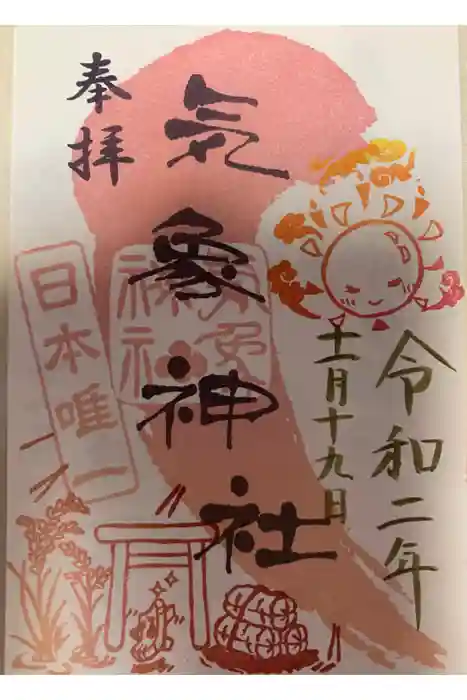 奉拝
気象神社
日本唯一
令和二年
十一月十九日